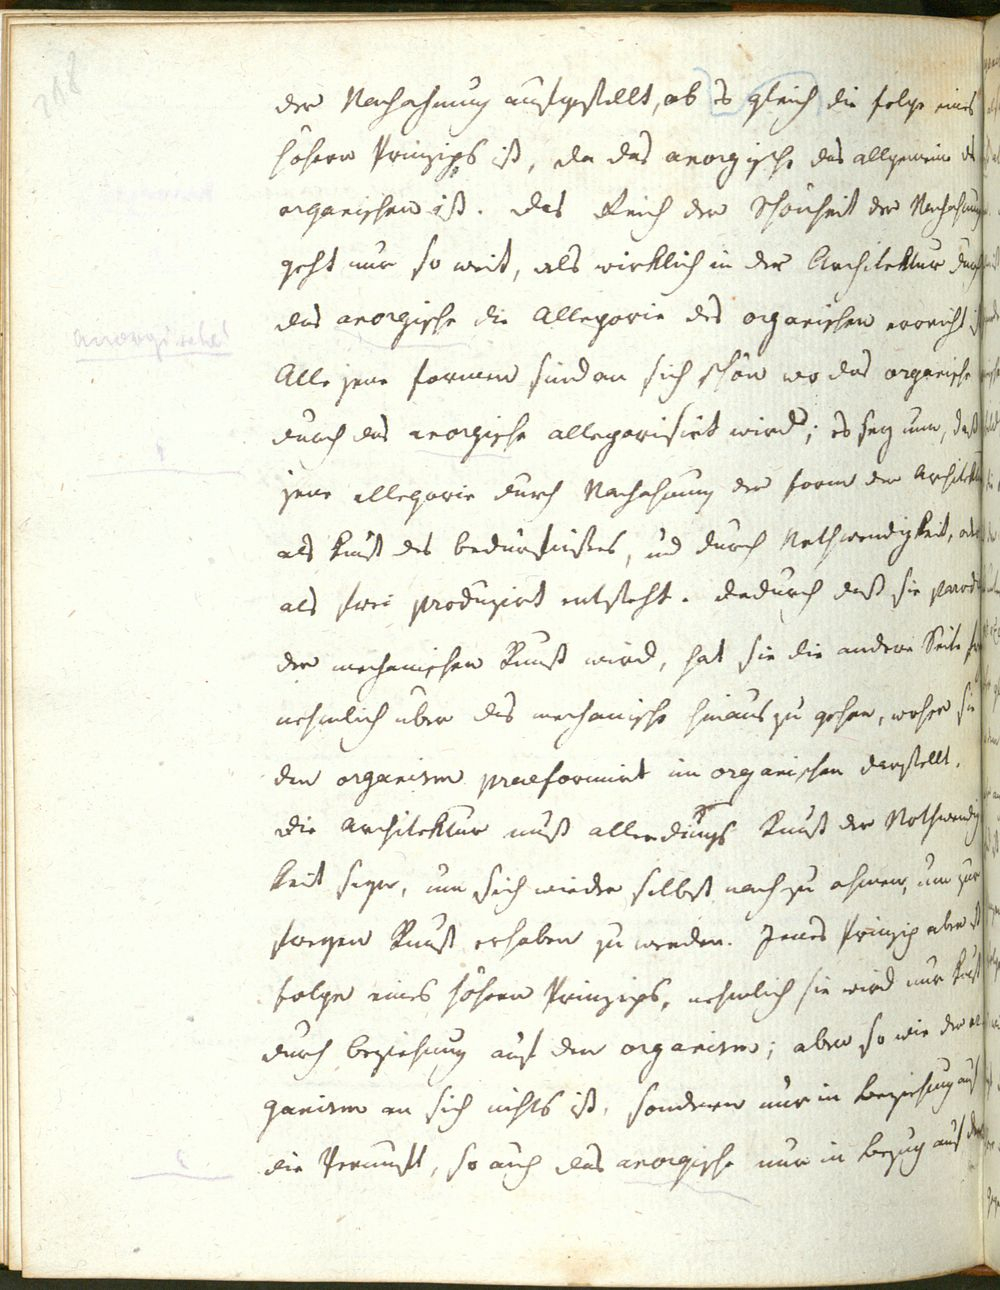 208
der Nachahmung aufgestellt, ob es gleich die Folge eines
höhern Prinzips ist, da das anorgische das allgemeine des
organischen ist. Das Reich der Schönheit der Nachahmung
geht nur so weit, als wirklich in der Architektur durch
das anorgische die Allegorie des organischen erreicht
anorgisches
Alle jene Formen sind an sich schön wo das organische
durch das anorgische allegorisirt wird; es sey nun, daß
jene Allegorie durch Nachahmung der Form der Architektur
als Kunst des Bedürfnißes, und durch Nothwendigkeit, oder
als frei produzirt entsteht. Dadurch daß sie
der mechanischen Kunst wird, hat sie die andere Seite
nehmlich über das mechanische hinaus zu gehen, woher sie
den organism praeformirt im organischen darstellt.
Die Architektur muß allerdings Kunst der Nothwendig
keit seyn, um sich wieder selbst nach zu ahmen, um zur
freyen Kunst erhoben zu werden. Jenes Prinzip aber ist
Folge eines höhern Prinzips, nehmlich sie wird nur Kunst
durch Beziehung auf den organism; aber so wie der or
ganism an sich nichts ist, sondern nur in Beziehung auf
die Vernunft, so auch das anorgische nur in Bezug auf den